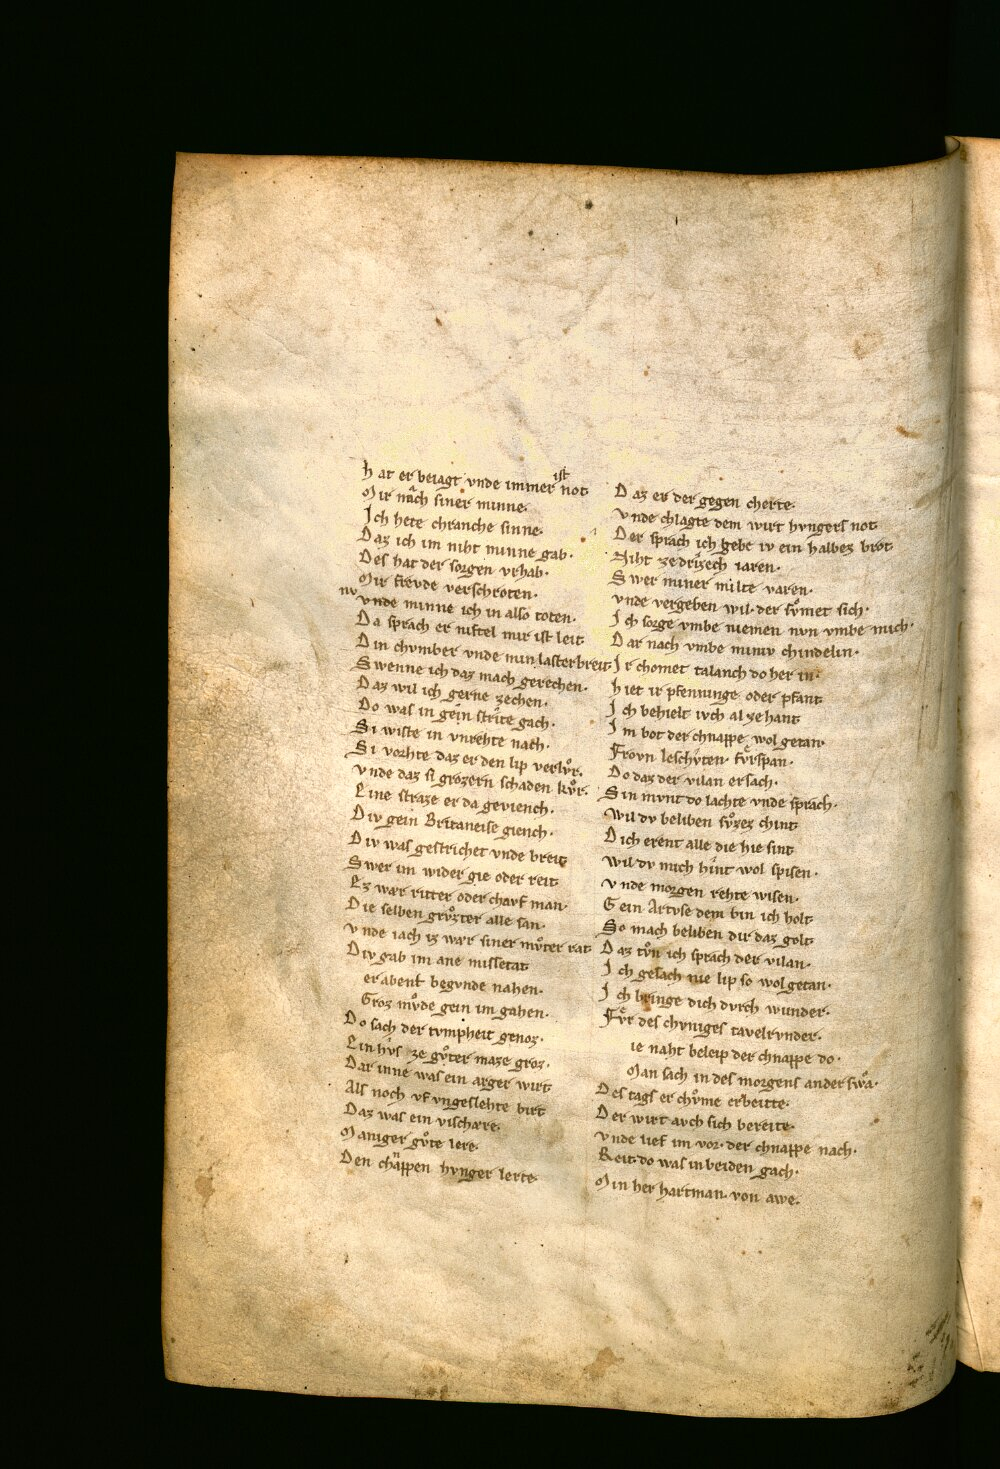 hat er beiagt vnde immer ist not
Mir nach siner minne.
Ich hete chranche sinne.
Daz ich im niht minne gab.
Des hat der sorgen vrhab.
Mir frevde verschroten.
nv vnde minne ich in also toten.
Da sprach er niftel mir ist leit
Din chvmber vnde min laster breit
Swenne ich daz mach gerechen.
Daz wil ich gerne zechen.
Do was in gein strite gach.
Si wiste in vnrehte nach.
Si vorhte daz er den lip verlvͦr.
vnde daz si grozern schaden kvͦr.
Eine straze er da geviench.
Div gein Britaneise giench.
Div was gestrichet vnde breit
Swer im wider gie oder reit
Ez wær ritter oder chavf man.
Die selben grvͦzter alle san.
vnde iach iz wær siner mvͦter rat
Div gab im ane missetat
er abent begvnde nahen.
Groz mvͦde gein im gahen.
Do sach der tvmpheit genoz.
Ein hvs ze gvͦter maze groz.
Dar inne was ein arger wirt
Als noch vf vngeslehte birt
Daz was ein vischære.
Maniger gvͦte lere.
Den chappen hvnger lerte
Daz er der gegen cherte.
vnde chlagte dem wirt hvngers not
Der sprach ich gebe iv ein halbez brot
Niht ze drizech iaren.
Swer miner milte varen.
vnde vergeben wil. der svͦmet sich.
Ich sorge vmbe niemen nvn vmbe mich.
Dar nach vmbe miniv chindelin.
Ir chomet talanch do her in.
hiet ir pfenninge oder pfant
Ich behielt ivch al zehant
Im bot der chnappe wol getan.
Frovn leschvten. fvͤrspan.
Do daz der vilan ersach.
Sin mvnt do lachte vnde sprach.
wil dv beliben svͦzez chint
Dich erent alle die hie sint
wil dv mich hint wol spisen.
vnde morgen rehte wisen.
Gein Artvse dem bin ich holt
So mach beliben dir daz golt
Daz tvͦn ich sprach der vilan.
Ich gesach nie lip so wol getan.
Ich bringe dich dvrch wunder.
Fvͤr des chvniges tavelrvnder.
ie naht beleip der chnappe do.
Man sach in des morgens ander swa.
Des tags er chvͦme erbeitte.
Der wirt avch sich bereite.
vnde lief im vor. der chnappe nach.
Reit. do was in beiden gach.
Min her hartman von awe.